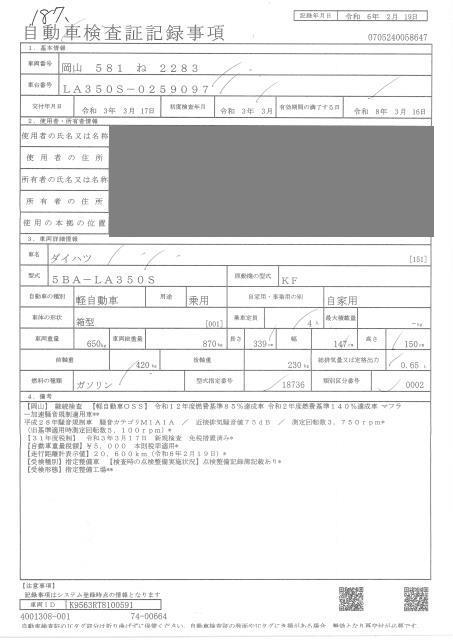 187.
記録年月日 令和 6年 2月 19日
自動車検査証記録事項
0705240058647
1. 基本情報
車両番号 岡山 581 ね 2283
車台番号 LA350S-0259097
交付年月日 令和 3年 3月 17日 初度検査年月 令和 3年 3月 有効期間の満了する日 令和 8年 3月 16日
2. 使用者・所有者情報
使用者の氏名又は名称
使用者の住所
所有者の氏名又は名称
所有者の住所
使用の本拠の位置
3. 車両詳細情報
車名 ダイハツ [151]
型式 5BA-LA350S 原動機の型式 KF
自動車の種別 軽自動車 用途 乗用 自家用・事業用の別 自家用
車体の形状 箱型 [001] 乗車定員 4人 最大積載量 -kg
車両重量 650kg 車両総重量 870kg 長さ 339cm 幅 147cm 高さ 150cm
前軸重 420kg 後軸重 230kg 総排気量又は定格出力 0.65 L
燃料の種類 ガソリン 型式指定番号 18736 類別区分番号 0002
4. 備考
【岡山】 継続検査 【軽自動車OSS】 令和12年度燃費基準85%達成車 令和2年度燃費基準140%達成車 マフラ
ー加速騒音規制適用車**
平成28年騒音規制車 騒音カテゴリM1A1A / 近接排気騒音値75dB / 測定回転数3,750rpm*
(旧基準適用時測定回転数5,100rpm)*
【31年度税制】 令和3年3月17日 新規検査 免税措置済み*
【自動車重量税額】¥5,000 本則税率適用*
【走行距離計表示値】20,600km(令和6年2月19日)*
【受検種別】指定整備車 【検査時の点検整備実施状況】点検整備記録簿記載あり*
【受検形態】指定整備工場**
【注意事項】
記録事項はシステム登録時点の情報となります
車両ID K9563RT8100591
4001308-001 74-00664